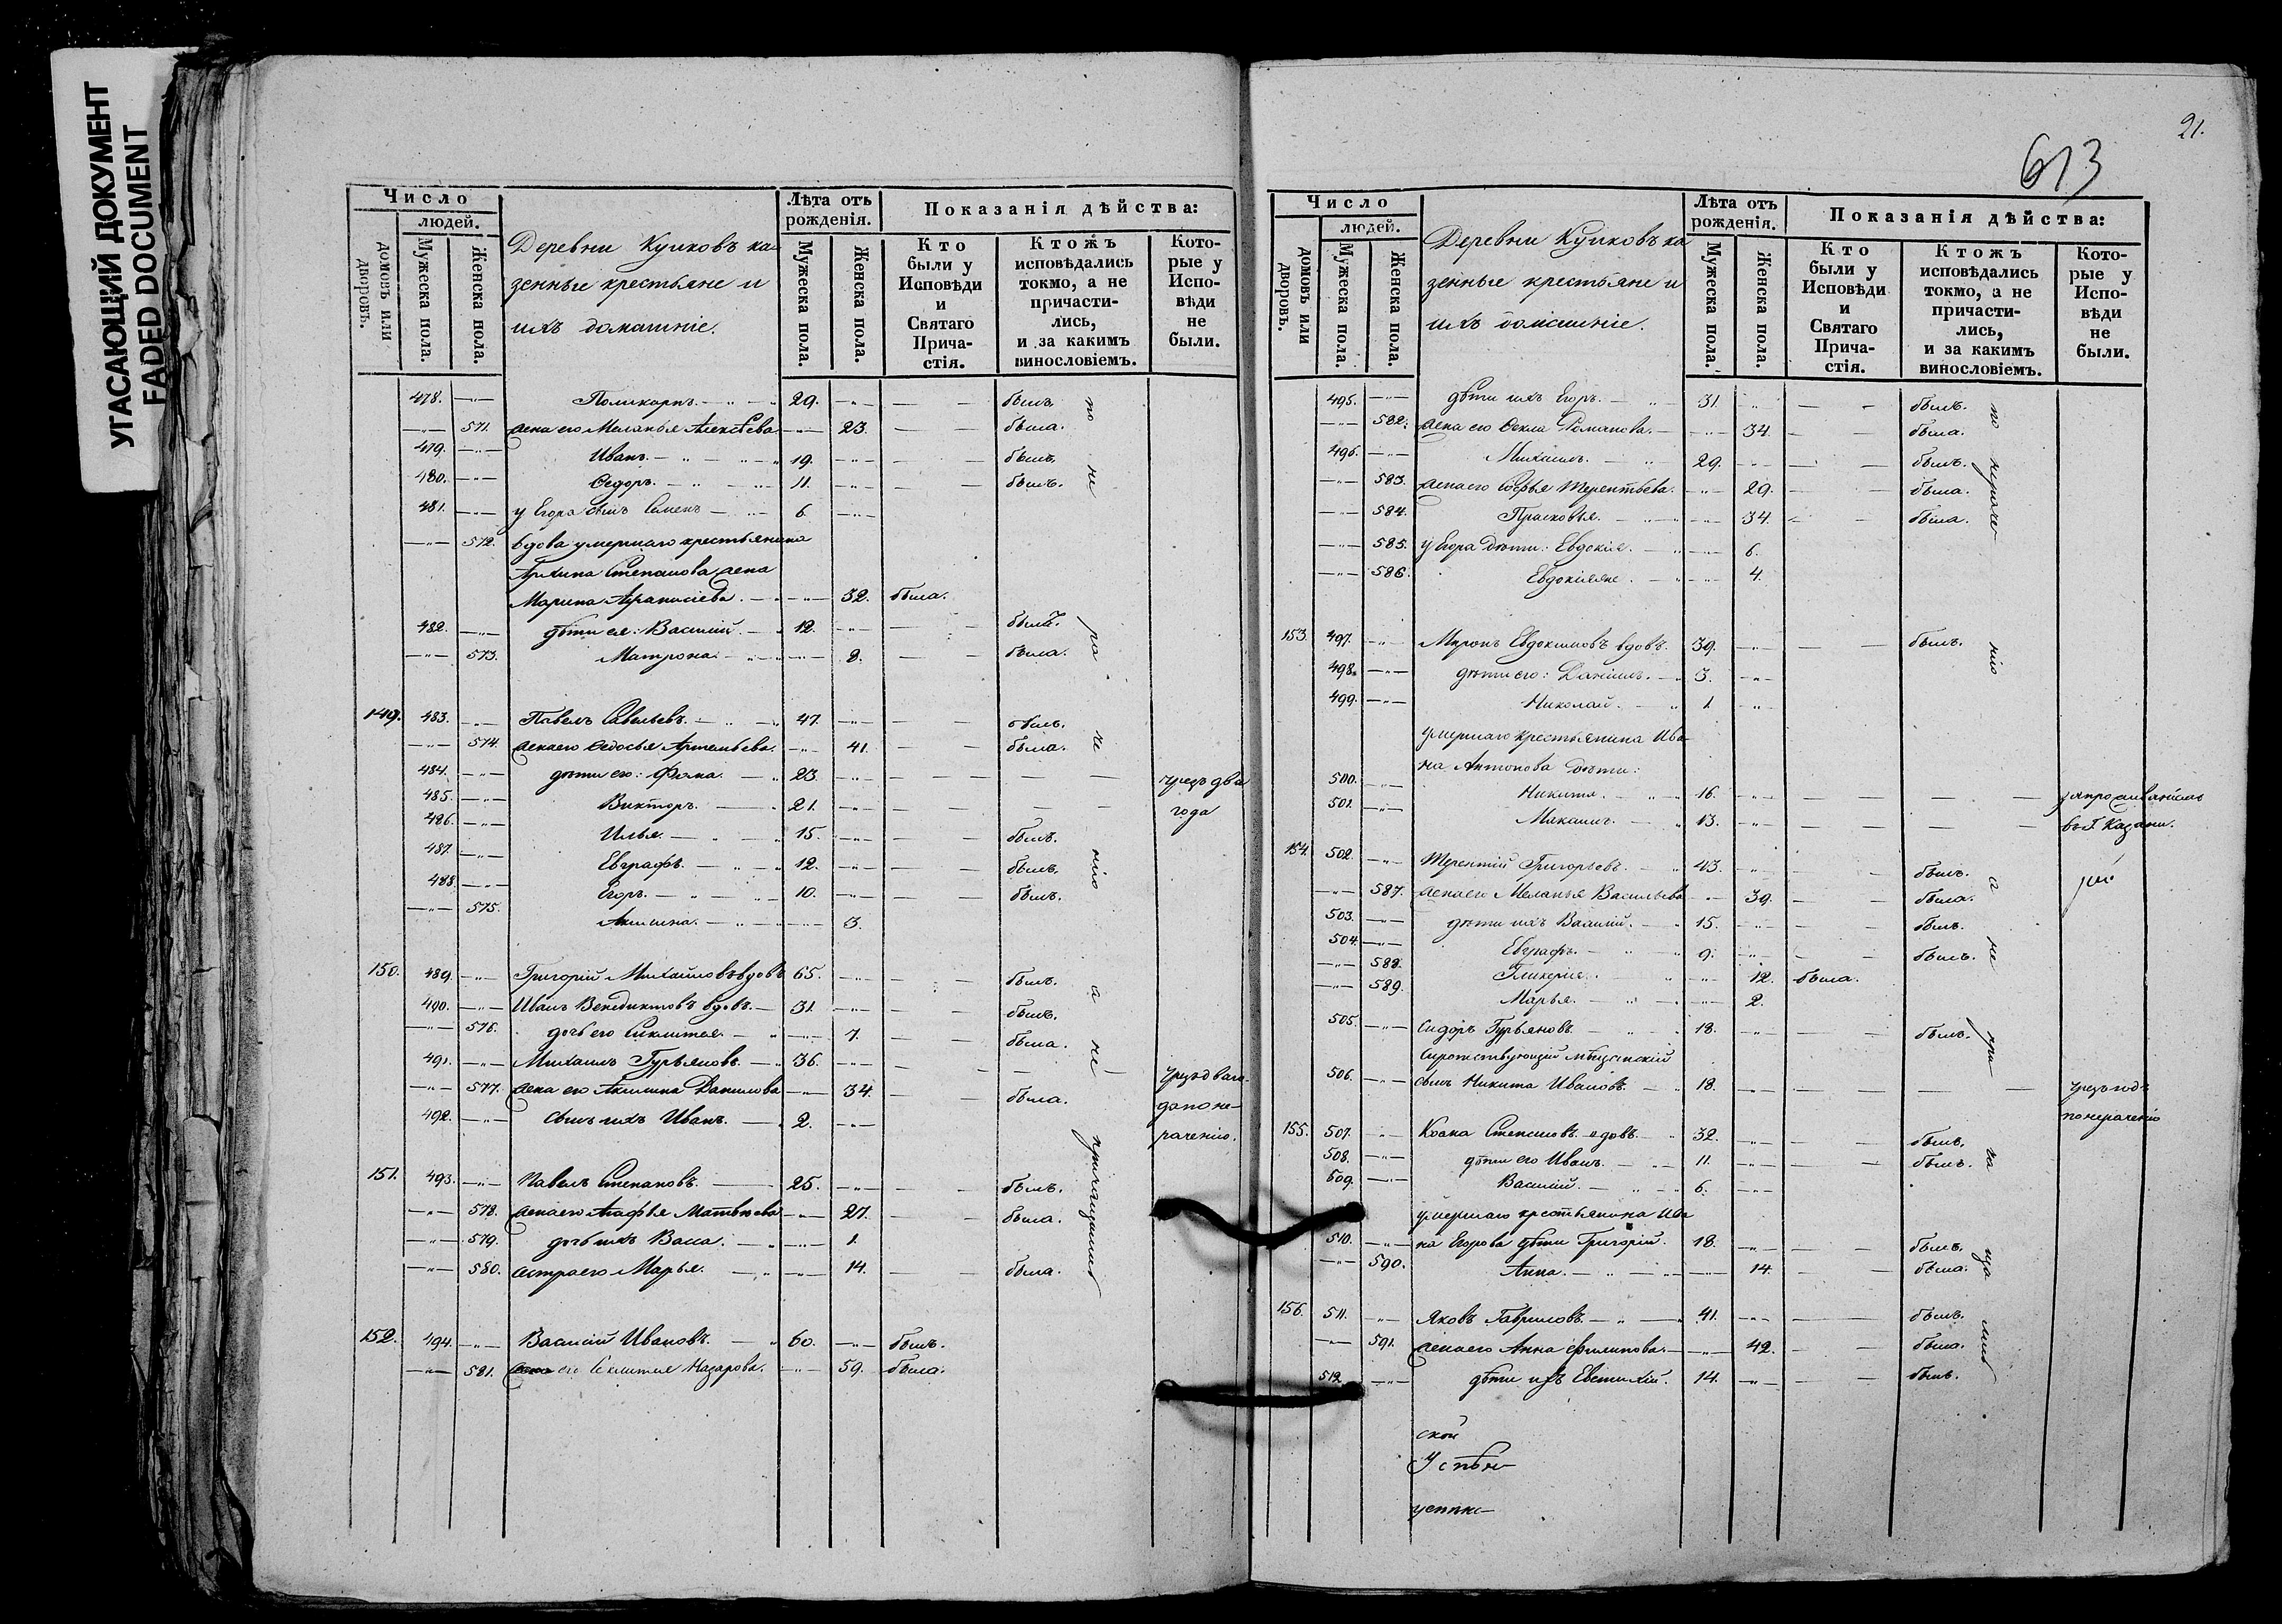 УГАСАЮЩИЙ ДОКУМЕНТ
FADED DOCUMENT
Число
людей.
домовъ или дворовъ.
Мужеска пола.
Женска пола.
Деревни Куиковъ ка-
зенные крестьяне и
ихъ домашніе.
Лѣта отъ рожденія.
Мужеска пола.
Женска пола.
Показанія дѣйства:
Кто были у Исповѣди и Святаго Причастія.
Ктожъ исповѣдались токмо, а не причасти-лись, и за какимъ винословіемъ.
Кото-рые у Испо-вѣди не были.
478. —„— Поликарпъ. — „ — 29. —„— — — былъ
—„— 571. жена его Меланья Алексѣева —„— 23. — — была.
479. —„— Иванъ. — „ — 19. —„— — — былъ
480. —„— Ѳедоръ. — „ — 11. —„— — — былъ.
481. —„— у Егора сынъ Семенъ — „ — 6. —„—
—„— 572. вдова умершаго крестьянина
Степанова жена
Марина Афанасіева. — —„— 32. была.
482. —„— дѣти ея: Василій. — 12. —„— — — былъ.
—„— 573. Матрона. — „ — —„— 8. — — была.
149. 483. —„— Павелъ Савельевъ. — „ — 47. —„— — — былъ.
—„— 574. жена его Ѳедосья Артемьева. —„— 41. — — была.
484. —„— дѣти его: Фома. — 23. —„— — — — — чрезъ два
485. —„— Викторъ. — 21. —„— — — — — года
486. —„— Илья. — „ — 15. —„— — — былъ.
487. —„— Евграфъ. — „ — 12. —„— — — былъ.
488. —„— Егоръ. — „ — 10. —„— — — былъ.
—„— 575. Акилина. — „ — —„— 3.
150. 489. —„— Григорій Михайловъ вдовъ 65. —„— — — былъ.
490. —„— Иванъ Венедиктовъ вдовъ. — 31. —„— — — былъ.
—„— 576. дочь его Секлитея. — —„— 7. — — была.
491. —„— Михаилъ Гурьяновъ. — 36. —„— — — — чрезъ два го-
—„— 577. жена его Акилина Данилова —„— 34. — — была. да по не-
492. —„— сынъ ихъ Иванъ. — 2. —„— раченію.
151. 493. —„— Павелъ Степановъ. — 25. —„— — — былъ.
—„— 578. жена его Агафья Матвѣева —„— 27. — — была.
—„— 579. дочь ихъ Васса. — —„— 1.
—„— 580. сестра его Марья. — —„— 14. — была.
152. 494. —„— Василій Ивановъ. — 60. —„— былъ.
—„— 581. жена его Секлитея Назарова. —„— 59. была.
по
не
ра
че
нію
а
не
пріобщились
21.
613
Число
людей.
домовъ или дворовъ.
Мужеска пола.
Женска пола.
Деревни Куиковъ ка
зенные крестьяне и
ихъ домашніе.
Лѣта отъ рожденія.
Мужеска пола.
Женска пола.
Показанія дѣйства:
Кто были у Исповѣди и Святаго Прича-стія.
Ктожъ исповѣдались токмо, а не причасти-лись, и за какимъ винословіемъ.
Кото-рые у Испо-вѣди не были.
495. —„— дѣти ихъ Егоръ. — „ — 31. —„— — — былъ.
—„— 582. жена его Ѳекла Романова. — —„— 34. — — была.
496. —„— Михаилъ. — „ — 29. —„— — — былъ.
—„— 583. жена его Софья Терентьева. —„— 29. — — была.
—„— 584. Прасковья. — —„— 34. — — была.
—„— 585. у Егора дѣти: Евдокія. — —„— 6.
—„— 586. —„— 4.
153. 497. —„— Миронъ Евдокимовъ вдовъ. 39. —„— — — былъ.
498. —„— дѣти его: Даніилъ. — 3. —„—
499. —„— Николай. — 1. —„—
умершаго крестьянина Ива-
на Антонова дѣти:
500. —„— Никита. — 16. —„— — — — —
501. —„— Михаилъ. — 13. —„— — — — — Казани.
154. 502. —„— Терентій Григорьевъ. — 43. —„— — — былъ.
—„— 587. жена его Меланья Васильева —„— 39. — — была.
503. —„— дѣти ихъ Василій. — 15. —„— — — былъ.
504. —„— Евграфъ. — 9. —„— — — былъ.
—„— 588. Гликерія. — —„— 12. была.
—„— 589. Марья. — —„— 2.
505. —„— Сидоръ Гурьяновъ. — 18. —„— — — былъ.
сиротствующій мѣщанскій
506. —„— сынъ Никита Ивановъ. — 18. —„— — — — чрезъ годъ
по нераченію
155. 507. —„— Косма Степановъ вдовъ. 32. —„— — — былъ.
508. —„— дѣти его Иванъ. — 11. —„— — — былъ.
509. —„— Василій. — 6. —„—
умершаго крестьянина Ива
510. —„— на Егорова дѣти Григорій. 18. —„— — — былъ.
—„— 590. Анна. — „ — —„— 14. — — была.
156. 511. —„— Яковъ Гавриловъ. — 41. —„— — — былъ.
—„— 591. жена его Анна Филипова. —„— 42. — — была.
512. —„— дѣти ихъ Евстихій. 14. —„— — — былъ.
по
нераче
нію
а
не
ской